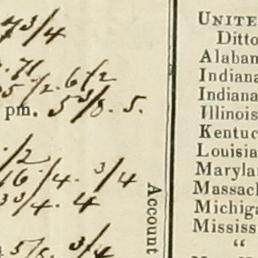 7 3/4
5 1/2. 6 1/2
pm. 5 3/8. 5.
1/2
16 1/4. 3/4
3 3/4. 4
5/8 3/4
Account
UNITE
Ditto
Alaban
Indiana
Indiana
Illinois
Kentuc
Louisia
Marylan
Massach
Michiga
Mississ
"